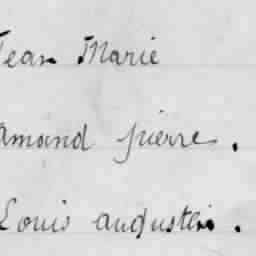 Jean Marie
amand pierre.
Louis augustin.